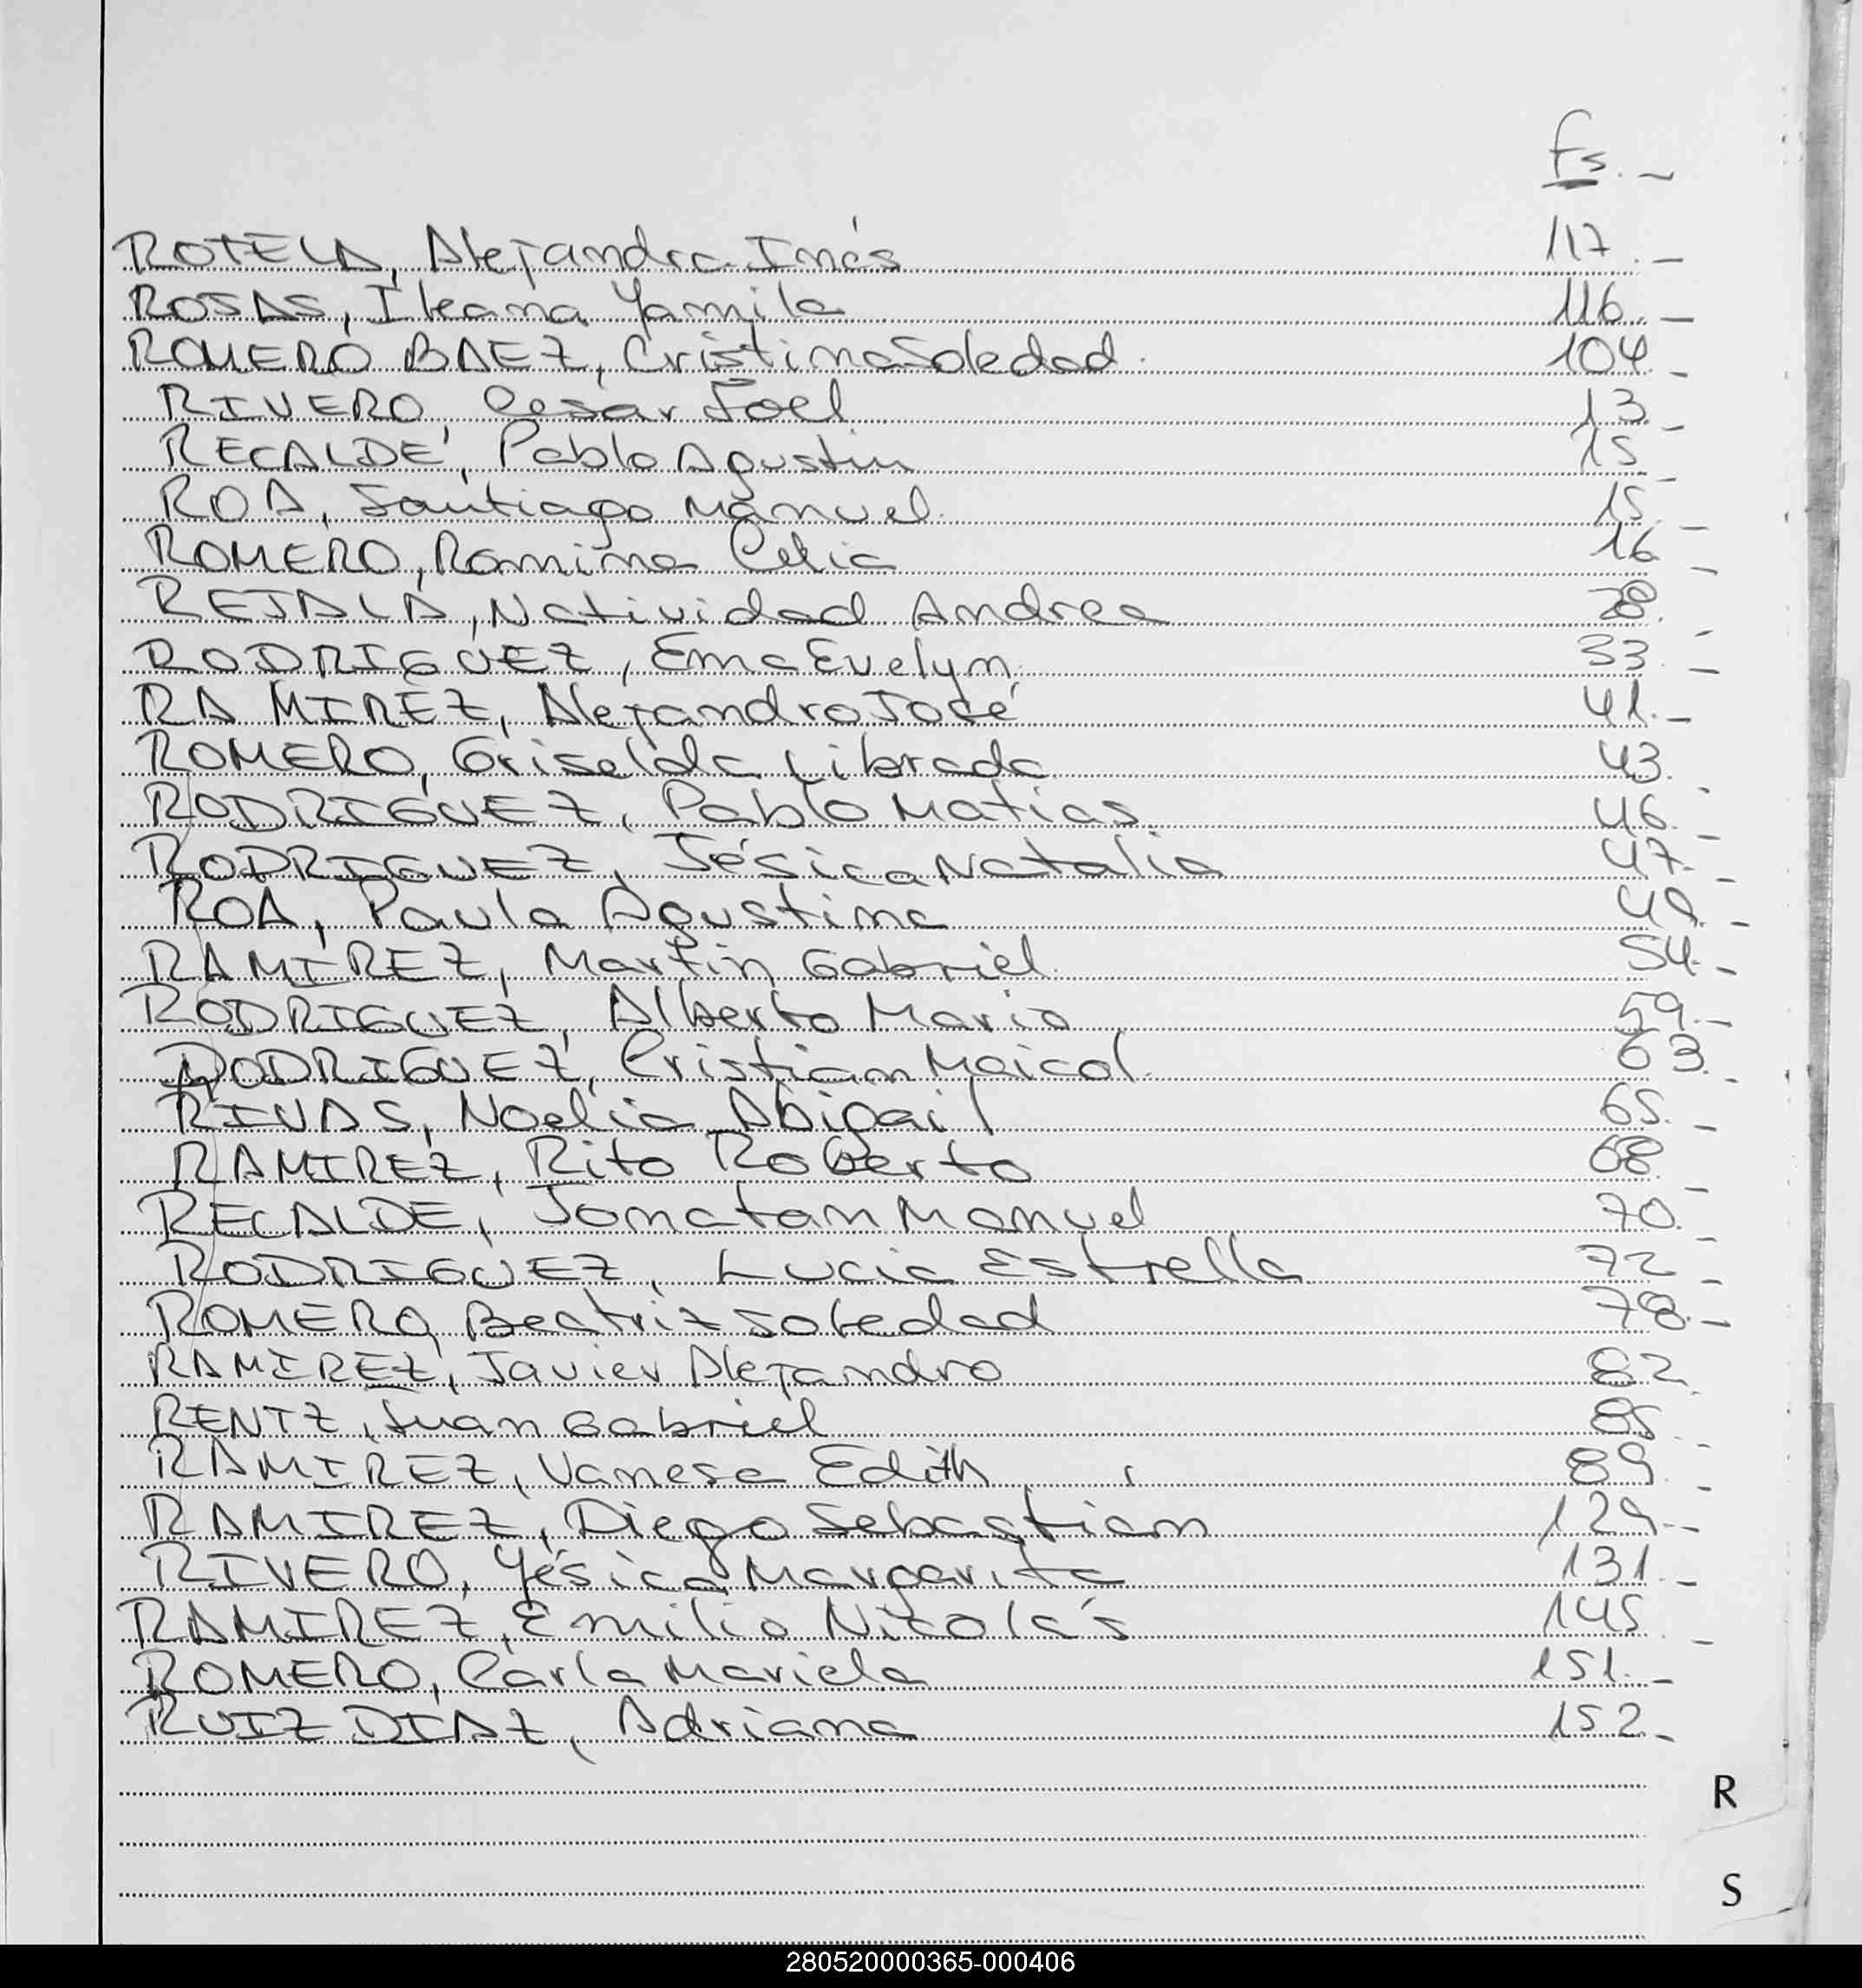 Fs. -
ROTELA, Alejandra Inés 117.-
ROSAS, Ileana Yamila 116.-
ROMERO BAEZ, Cristina Soledad. 104.-
RIVERO, Cesar Joel 13.-
RECALDE, Pablo Agustín 15.-
ROA, Santiago Manuel. 15.-
ROMERO, Romina Celia 16.-
REJALA, Natividad Andrea 28.-
RODRIGUEZ, Ema Evelyn. 33.-
RAMIREZ, Alejandro José 41.-
ROMERO, Griselda Librada 43.-
RODRIGUEZ, Pablo Matias. 46.-
RODRIGUEZ, Jésica Natalia 47.-
ROA, Paula Agustina 49.-
RAMIREZ, Martín Gabriel. 54.-
RODRIGUEZ, Alberto Mario 59.-
RODRIGUEZ, Cristian Maicol. 63.-
RIVAS, Noelia Abigail 65.-
RAMIREZ, Rito Roberto 68.-
RECALDE, Jonatan Manuel 70.-
RODRIGUEZ, Lucia Estrella 72.-
ROMERO, Beatriz Soledad 78.-
RAMIREZ, Javier Alejandro 82.
RENTZ, Juan Gabriel 85.-
RAMIREZ, Vanesa Edith 89.-
RAMIREZ, Diego Sebastian 129.-
RIVERO, Yésica Margarita 131.-
RAMIREZ, Emilio Nicolás 145.-
ROMERO, Carla Mariela 151.-
RUIZ DIAZ, Adriana 152.-
R
S
280520000365-000406